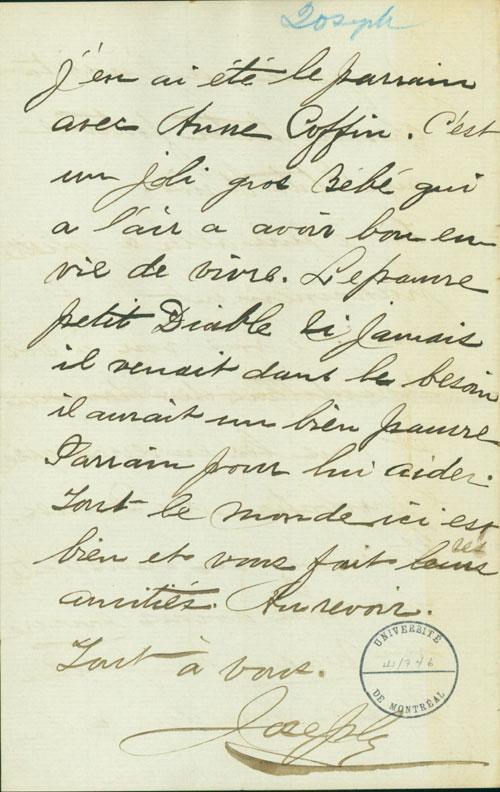 Joseph
j'en ai été le parrain
avec Anne Coffin. C'est
un joli gros Bébé qui
a l'air a avoir bon en
vie de vivre. Le pauvre
petit Diable si jamais
il venait dans le besoin
il aurait un bien pauvre
Parrain pour lui aider.
Tout le monde ici est
bien et vous fait leurs
ses
amitiés. Au revoir.
Tout à vous.
Joseph
UNIVERSITÉ
DE MONTRÉAL